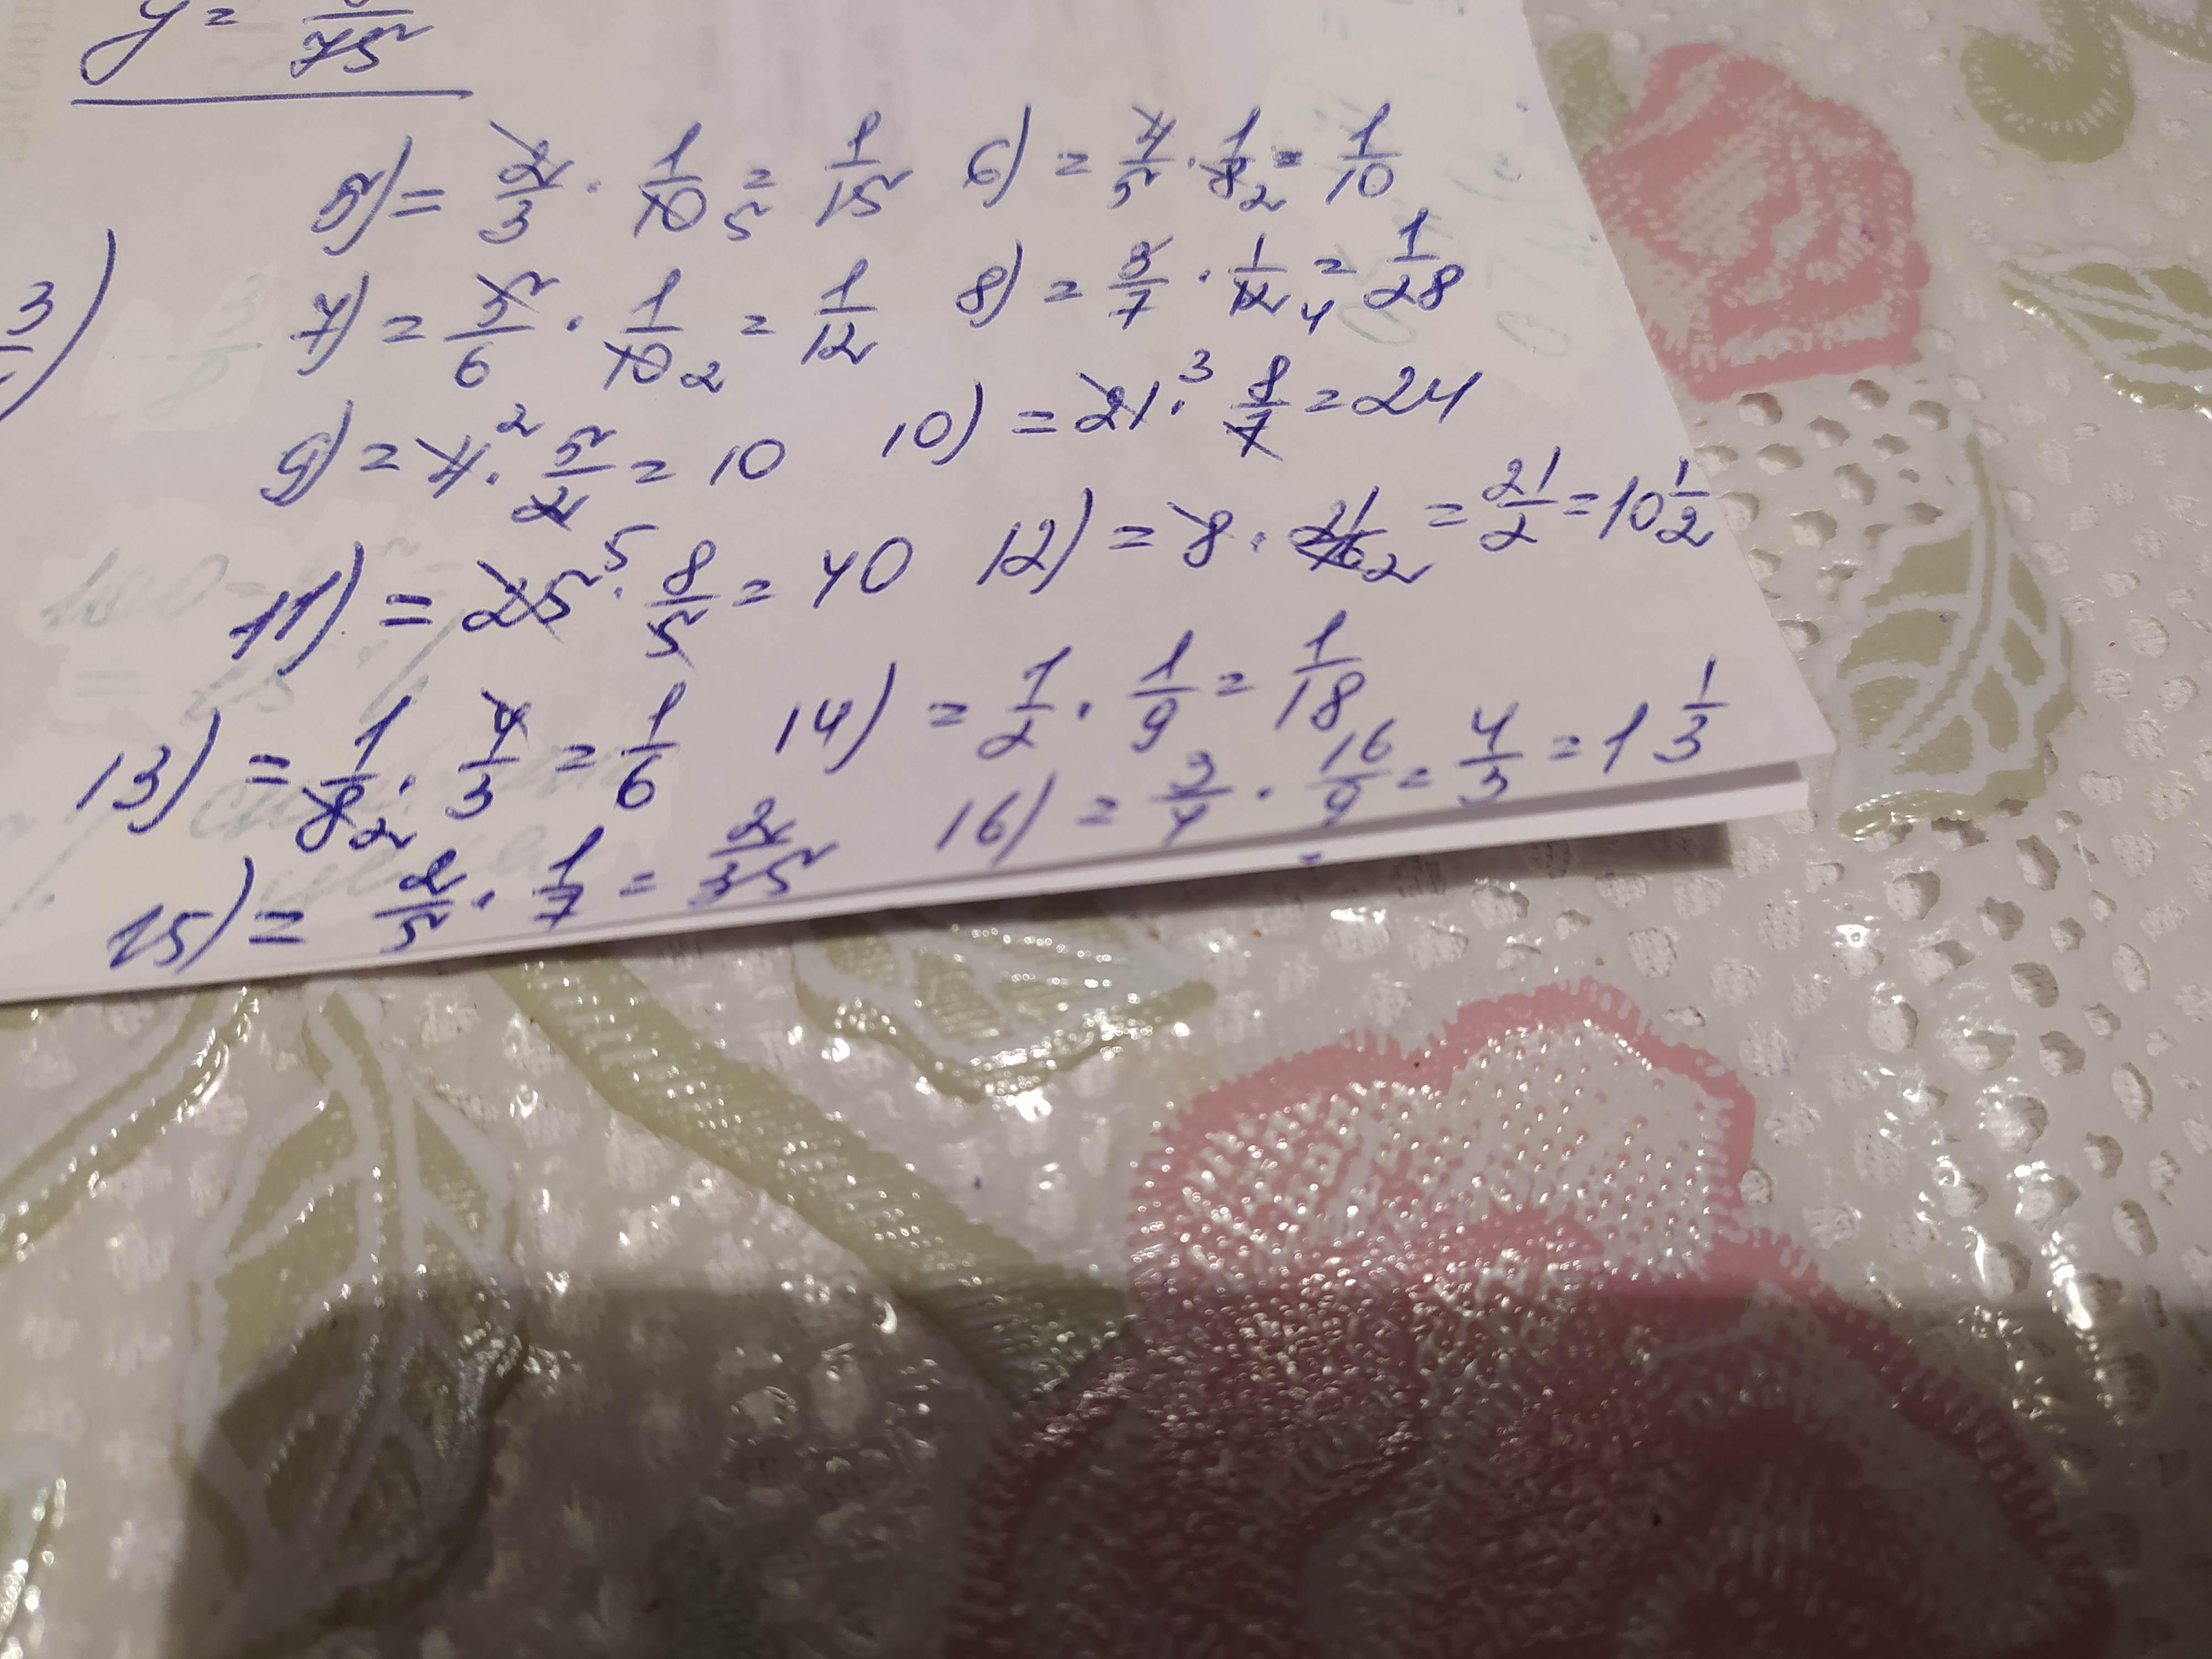 y = /75
3)
5) = 2/3 · 1/10 5 = 1/15 6) = 4/5 · 1/8 2 = 1/10
7) = 5/6 · 1/10 2 = 1/12 8) = 3/7 · 1/12 4 = 1/28
9) = 4 · 2 5/2 = 10 10) = 21 · 3 8/7 = 24
11) = 25 5 · 8/5 = 40 12) = 8 · 21/16 2 = 21/2 = 10 1/2
13) = 1/8 2 · 4/3 = 1/6 14) = 1/2 · 1/9 = 1/18
15) = 2/5 · 1/7 = 2/35 16) = 3/4 · 16/9 = 4/3 = 1 1/3